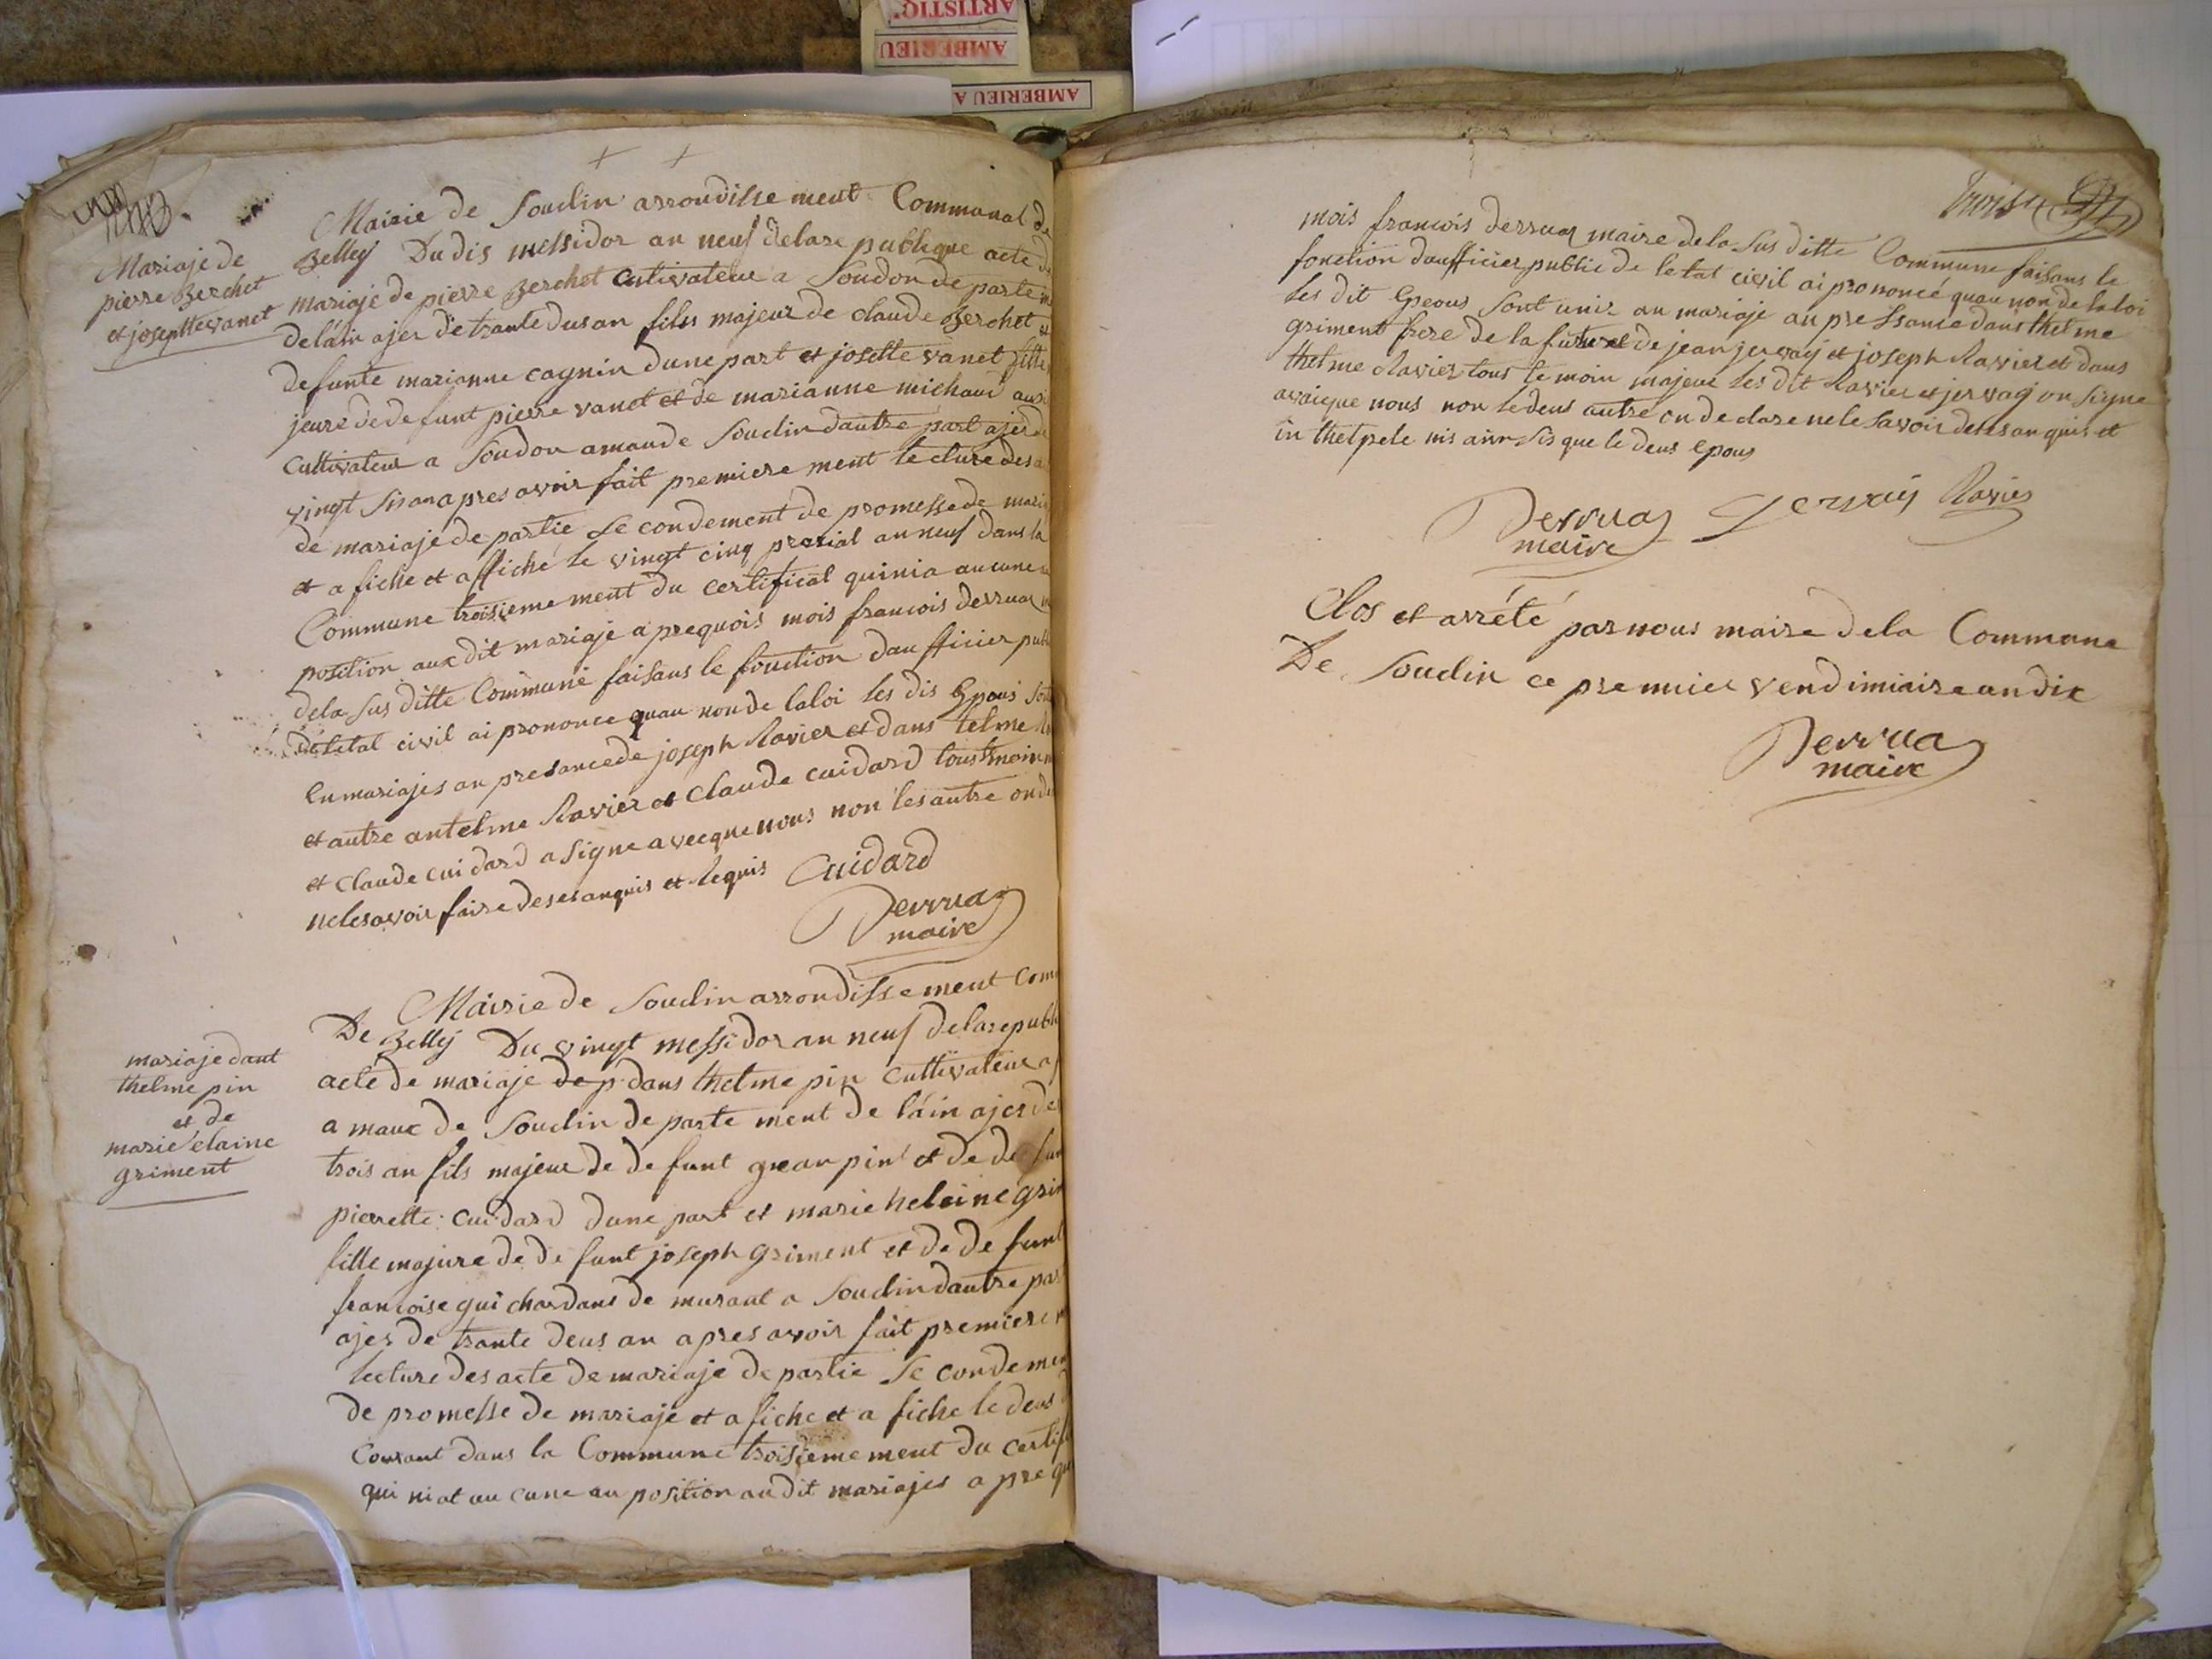 ARTISTIQ'
AMBERIEU
AMBERIEU A
Mariaje de
pierre Berchet
et josephte vanet
Mairie de Souclin arrondisse ment Communal de
Belley Du dis messidor an neuf delare publique acte de
mariaje de pierre Berchet Cultivateur a Soudon de parte m
delain ajer de trante dus an fils majeur de claude Berchet et
defunte marianne cagnin dune part et josette vanet fille
jeure dedefunt pierre vanet et de marianne michaud aus
Cultivateur a Soudon amaude Souclin dautre part ajer de
vingt sis an apres avoir fait premiere ment lecture des a
de mariaje de partie Se condement de promesse de maria
et a fiche et affiche le vingt cinq prerial an neuf dans la
Commune troisieme ment du certificat quinia aucune
position aux dit mariaje a prequois mois francois derruaz m
dela sus ditte Commune faisans le fonction daufficier publi
deletat civil ai prononce quau nonde laloi les dis Epous son
En mariajes an presancede joseph Ravier et dans telme
et autre antelme Ravier et Claude cuidard toustemoin m
et Claude cuidard a signe avecque nous non les autre onde
nelesavoir faire desesanquis et Requis Cuidard
Derruaz
maire
mariaje dant
thelme pin
et de
marie elaine
griment
Mairie de Souclin arrondisse ment Com
De Belley Du vingt messidor an neuf delarepubli
acte de mariaje de p dans thelme pin Cultivateur a
a maux de Souclin de parte ment de lain ajer de
trois an fils majeur de defunt grean pin et de de fun
pierrette cuidard dune part et marie heleine grim
fille majure de de funt joseph griment et de de funt
francoise guichardans de murant a Souclin dautre par
ajer de trante deus an apres avoir fait premiere m
lecture des acte de mariaje de partie Se condemen
de promesse de mariaje et a fiche et a fiche le deus
Courant dans la Commune troisieme ment du certifi
qui niat au cune au position au dit mariajes a pre qu
trois
mois francois derruaz maire dela sus ditte Commune faisans le
fonction daufficier public de letat civil ai prononcé quau non de laloi
les dit Epeous sont unir au mariaje an pressance dans thelme
griment frere de la future et de jean jervaij et joseph Ravier et dans
thelme Ravier tous te moin majeur les dit Ravier et jervaij on signe
avaique nous non ledeus autre on de clare nele Savoir deles an quis et
in thelpele nis ainsis que le deus epous
Derruaz
maire
Jervaij
Ravier
Clos et arrété par nous maire dela Commune
De Souclin ce premier vendimiaire an dix
Derruaz
maire